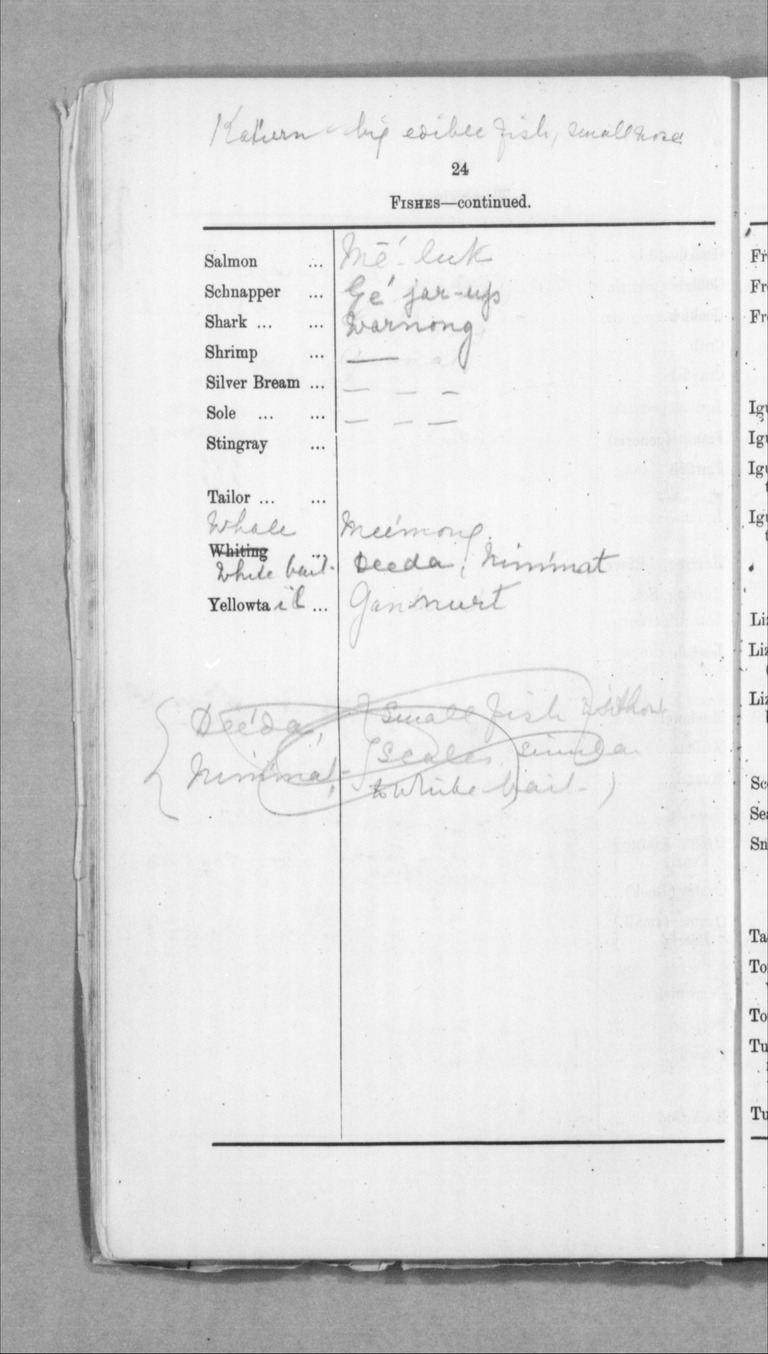 Katurn big edible fish, small nose
24
FISHES—continued.
Salmon ... Mē´-luk
Schnapper ... Gē´jar-up
Shark ... ... Warnong
Shrimp ... —
Silver Bream ... — — —
Sole ... ... — — —
Stingray ...
Tailor ... ...
Whale Meemong
Whiting ...
White bait. Deeda, Nimmat
Yellowtail ... Gannurt
Dee´da, small fish without
Nimmat, = scales simila
to White bait-)
Fr
Fr
Fr
Igu
Igu
Igu
t
Igu
t
Liz
Liz
(
Liz
Sc
Sea
Sn
Ta
To
To
Tu
Tu